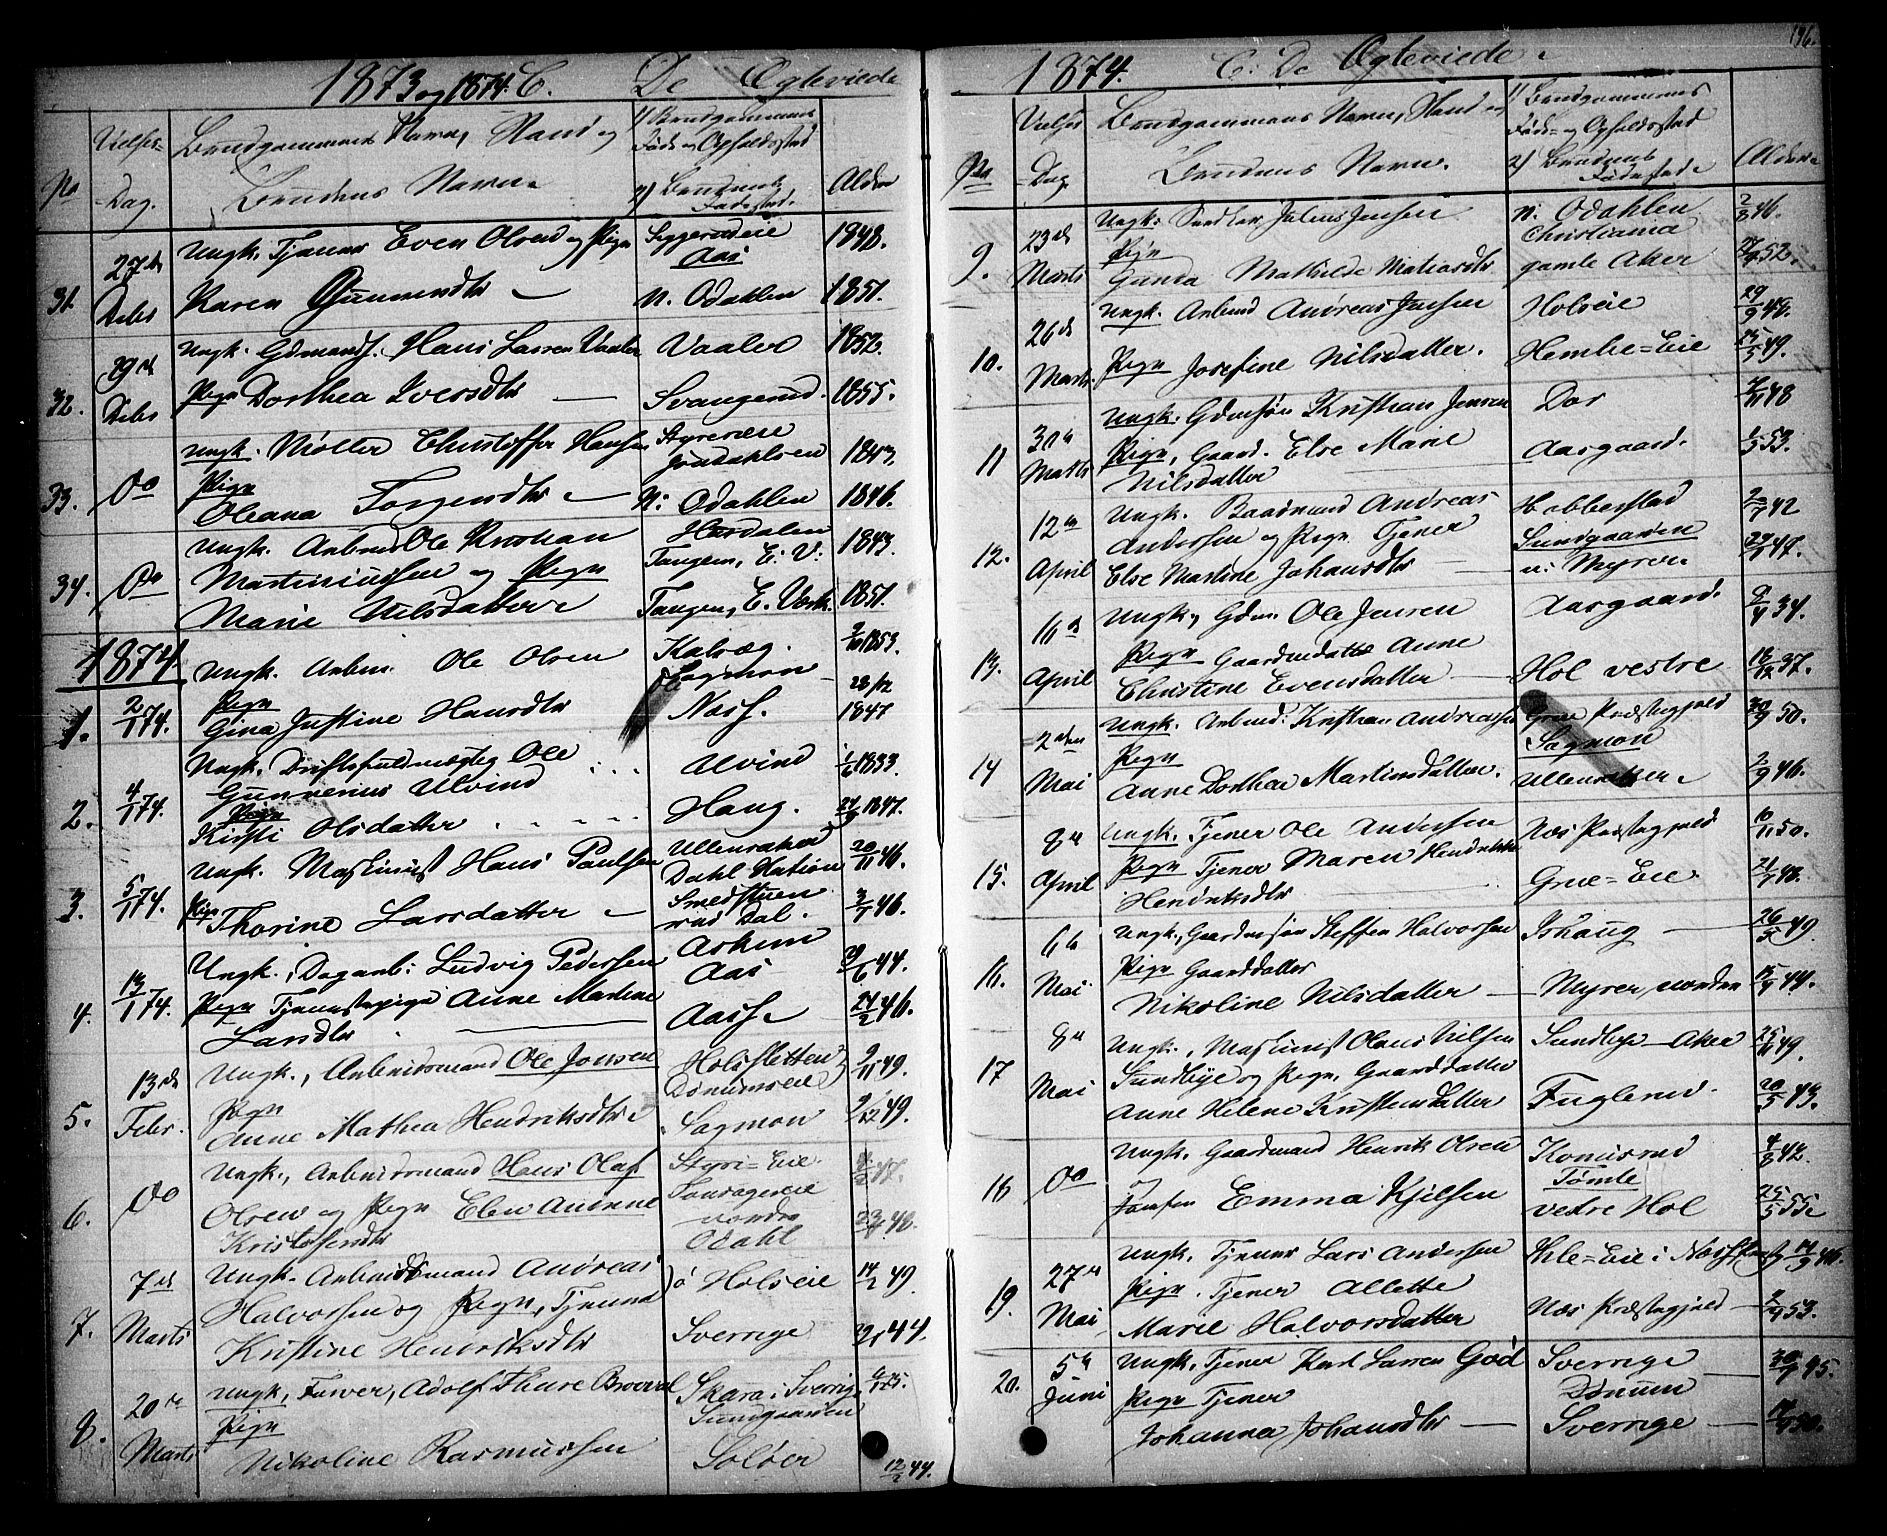 1873 og 1874. C. De Ægteviede
No
Vielses-Dag.
Brudgommens Navn, Stand og
Brudens Navn.
1) Brudgommens
Føde- og Opholdssted
2) Brudens
Fødested.
Alder
31. 27de Decbr
Ungk. Tjener Even Olsen og Pige
Karen Gunnersdtr
Aas
N. Odahlen
1848.
1851.
32. 29de Decbr
Ungk. Gdmands. Hans Larsen Vaaler
Pige Dorthea Iversdtr
Vaaler
Svangerud.
1852.
1855.
33. Do
Ungk. Møller Christoffer Hansen
Pige
Oleana
N. Odahlen
1843.
1846.
34. Do
Ungk. Arbm Ole Kristian
Martiniussen og Pige
Marie Nilsdatter
Tangen, E. V.
Tangen, E. Værk.
1843.
1851.
1874.
1. 2/1 74.
Ungk. Arbm. Ole Olsen
Pige
Gina Justine Hansdtr
Kalvæg.
Sagmoen
Næss.
1853.
28/12
1847
2. 4/1 74.
Ungk. Driftsfuldmægtig Ole
Gunnerius Ulvind
Pige
Kirsti Olsdatter
Ulvind
Haug.
1833.
1847.
3. 5/1 74.
Ungk. Maskinist Hans Paulsen
Pige Thorine Larsdatter
Ullensaker
Dahl Station
Smedstuen
ved Dal.
20/11 46.
3/7 46.
4. 13/1 74.
Ungk., Dagarb: Ludvig Pedersen
Pige Tjenestepige Anne Martine
Larsdtr
Askum
Aas
Aass
44.
24/2 46.
5. 13de Febr.
Ungk., Arbeidsmand Ole Jonsen
Pige
Anne Mathea Hendriksdtr
Holsletten
Dønumseie
Sagmoen
9/11 49.
9/12 49.
6. Do
Ungk., Arbeidsmand Hans Olaf
Olsen og Pige Elen Andrine
Kristofersdtr
Styri-Eie
nordre
Odahl
47.
48.
7. 7de Marts
Ungk. Arbeidsmand Andreas
Halvorsen og Pige, Tjener
Kristine Henriksdtr
Holseie
Sverrige
14/2 49.
44.
8. 20de Marts
Ungk, Farver, Adolf Thure
Pige
Nikoline Rasmussen
Skara i Sverrig
Sundgaarden
Soløer
12/2 44.
196.
1874. C. De Ægteviede.
No
Vielses-Dag.
Brudgommens Navn, Stand og
Brudens Navn.
1) Brudgommens
Føde- og Opholdssted
2) Brudens
Fødested
Alder
9. 23de Marts
Ungk. Julius Jensen
Pige
Gunda Mathilde Matiasdtr
N. Odahlen
Christiania
gamle Aker
2/8 46.
52.
10. 26de Marts
Ungk. Arbmd Andreas Jensen
Pige Josefine Nilsdatter.
Holseie
Hemlie-Eie
29/9 48.
25/5 49.
11 30te Marts
Ungk. Gdmsøn Kristian Jensen
Pige, Gaard. Else Marie
Nilsdatter
Dor
Aasgaard.
48
1/5 53.
12. 12te April
Ungk. Baadmand Andreas
Andersen og Pige Tjener
Else Martine Johansdtr
Habberstad
Sundgaarden
n: Myrer
42
47.
13. 16de April
Ungk, Gdm. Ole Jensen
Pige Gaardmdatter Anne
Christine Evensdatter
Aasgaard.
Hol vestre
34.
18/12 37.
14 2den Mai
Ungk. Arbmd. Kristian Andreassen
Pige
Anne Dorthea Martinsdatter.
Grue Præstegjeld
Sagmoen
Ullensaker
30/9 50.
2/9 46.
15. 8de April
Ungk. Tjener Ole Andersen
Pige Tjener Maren Hendrikke
Hendriksdtr
Næs Præstegjeld
Grue-Eie
10/11 50.
48.
16. 6te Mai
Ungk., Gaardmsøn Steffen Halvorsen
Pige Gaarddatter
Nikoline Nilsdatter
Ishaug
Myrer, nordre
26/3 49
44.
17 8de Mai
Ungk., Maskinist Olaus Nilsen
Sundbye og Pige, Gaarddatter
Anne Helene Kristensdatter
Sundbye-Aker
Fuglerud
25/11 49.
20/5 43.
18 Do
Ungk. Gaardmand Henrik Olsen
og
Jomfru Emma Kjelsen
Konisrud
Tømte
vestre Hol
4/8 42.
25/5 55.
19. 27de Mai
Ungk. Tjener Lars Andersen
Pige. Tjener Allette
Marie Halvorsdatter
Næs Præstegjeld
14/9 46.
53.
20. 5te Juni
Ungk. Tjener Karl Larsen God
Pige Tjener
Johanna Johansdtr
Sverrige
Dønum
Sverrige
45.
50.